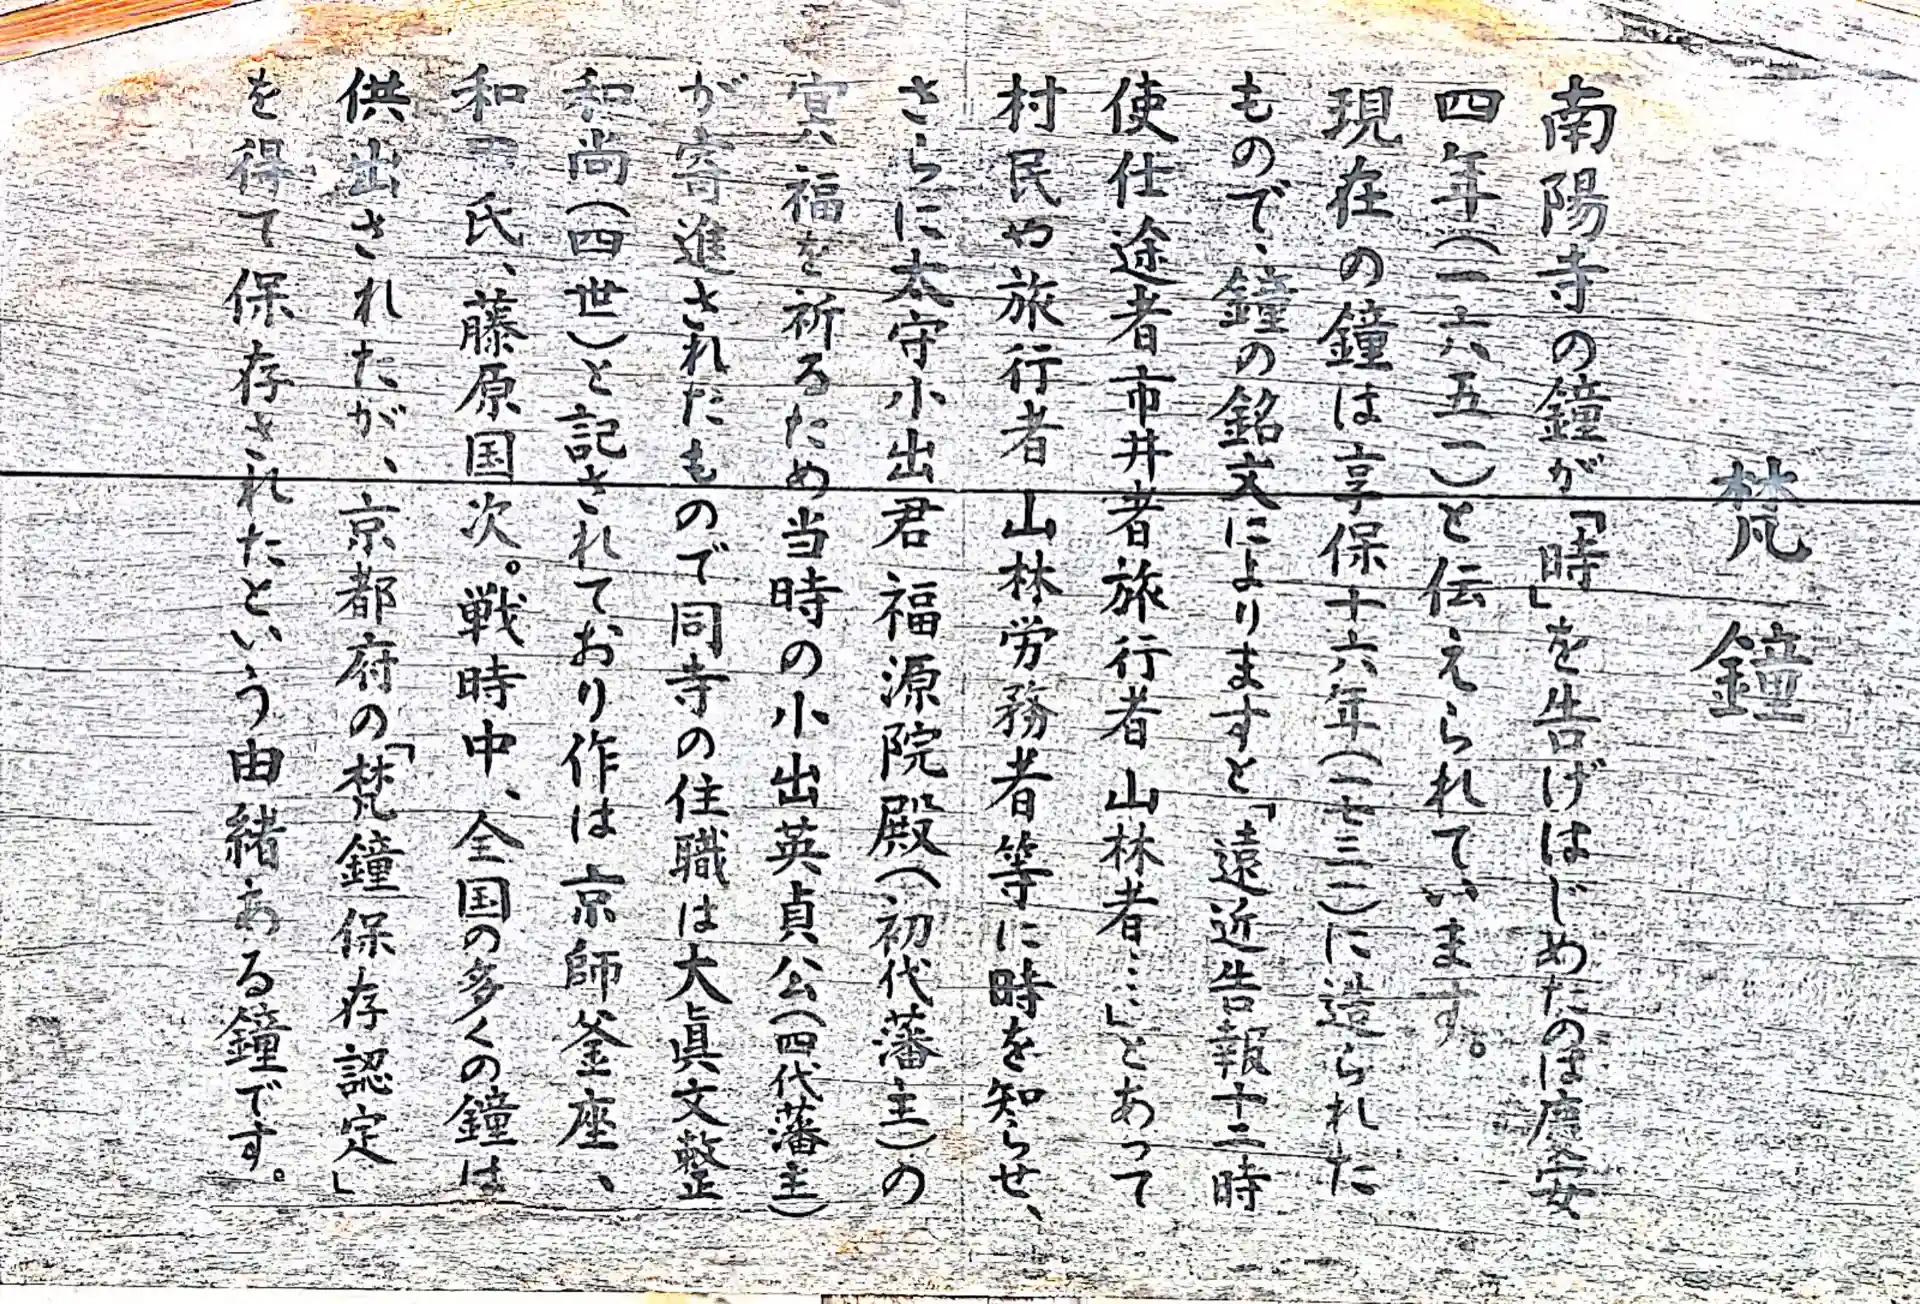 梵鐘
南陽寺の鐘が「時」を告げはじめたのは慶安
四年(一六五一)と伝えられています。
現在の鐘は享保十六年(一七三一)に造られた
もので、鐘の銘文によりますと「遠近告報十二時
使仕途者市井者旅行者山林者……」とあって
村民や旅行者山林労務者等に時を知らせ、
さらに太守小出君福源院殿(初代藩主)の
冥福を祈るため当時の小出英貞公(四代藩主)
が寄進されたもので同寺の住職は大眞文整
和尚(四世)と記されており作は京師釜座、
和田氏、藤原国次。戦時中、全国の多くの鐘は
供出されたが、京都府の「梵鐘保存認定」
を得て保存されたという由緒ある鐘です。